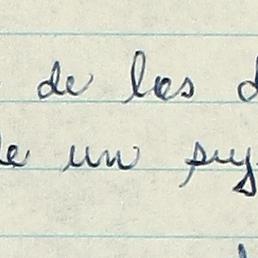 de los
de un